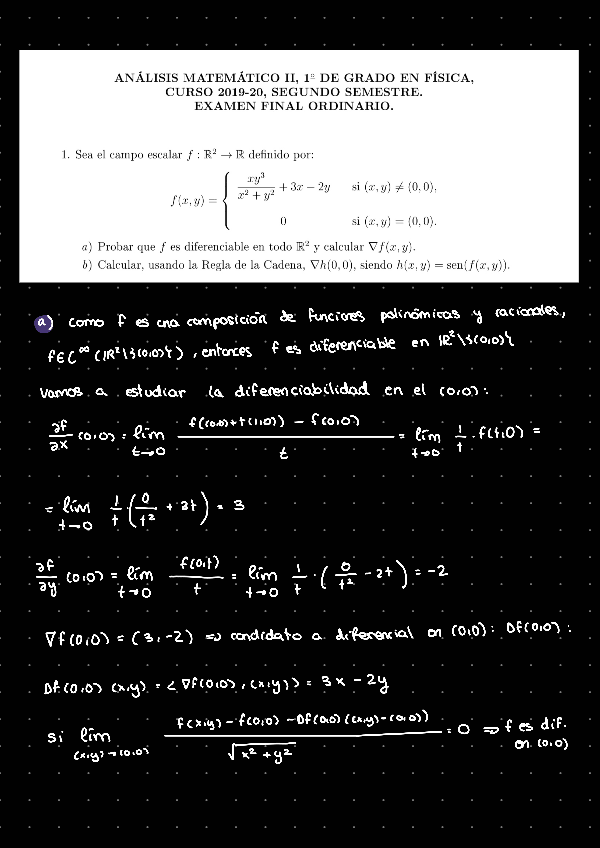 ANÁLISIS MATEMÁTICO II, 1º DE GRADO EN FÍSICA,
CURSO 2019-20, SEGUNDO SEMESTRE.
EXAMEN FINAL ORDINARIO.
1. Sea el campo escalar f : ℝ² → ℝ definido por:
f(x, y) = { xy³/(x² + y²) + 3x − 2y si (x, y) ≠ (0, 0),
0 si (x, y) = (0, 0).
a) Probar que f es diferenciable en todo ℝ² y calcular ∇f(x, y).
b) Calcular, usando la Regla de la Cadena, ∇h(0, 0), siendo h(x, y) = sen(f(x, y)).
a) como f es una composición de funciones polinómicas y racionales,
f∈C^∞(ℝ²\{(0,0)}), entonces f es diferenciable en ℝ²\{(0,0)}
Vamos a estudiar la diferenciabilidad en el (0,0):
∂f/∂x (0,0) = lím t→0 (f((0,0)+t(1,0)) − f(0,0))/t = lím t→0 1/t · f(t,0) =
= lím t→0 1/t (0/t² + 3t) = 3
∂f/∂y (0,0) = lím t→0 f(0,t)/t = lím t→0 1/t · (0/t² − 2t) = −2
∇f(0,0) = (3,−2) ⇒ candidato a diferencial en (0,0): Df(0,0):
Df(0,0) (x,y) = < ∇f(0,0), (x,y)) = 3x − 2y
si lím (x,y)→(0,0) (f(x,y) − f(0,0) − Df(0,0)((x,y)−(0,0)))/√(x² + y²) = 0 ⇒ f es dif.
en (0,0)